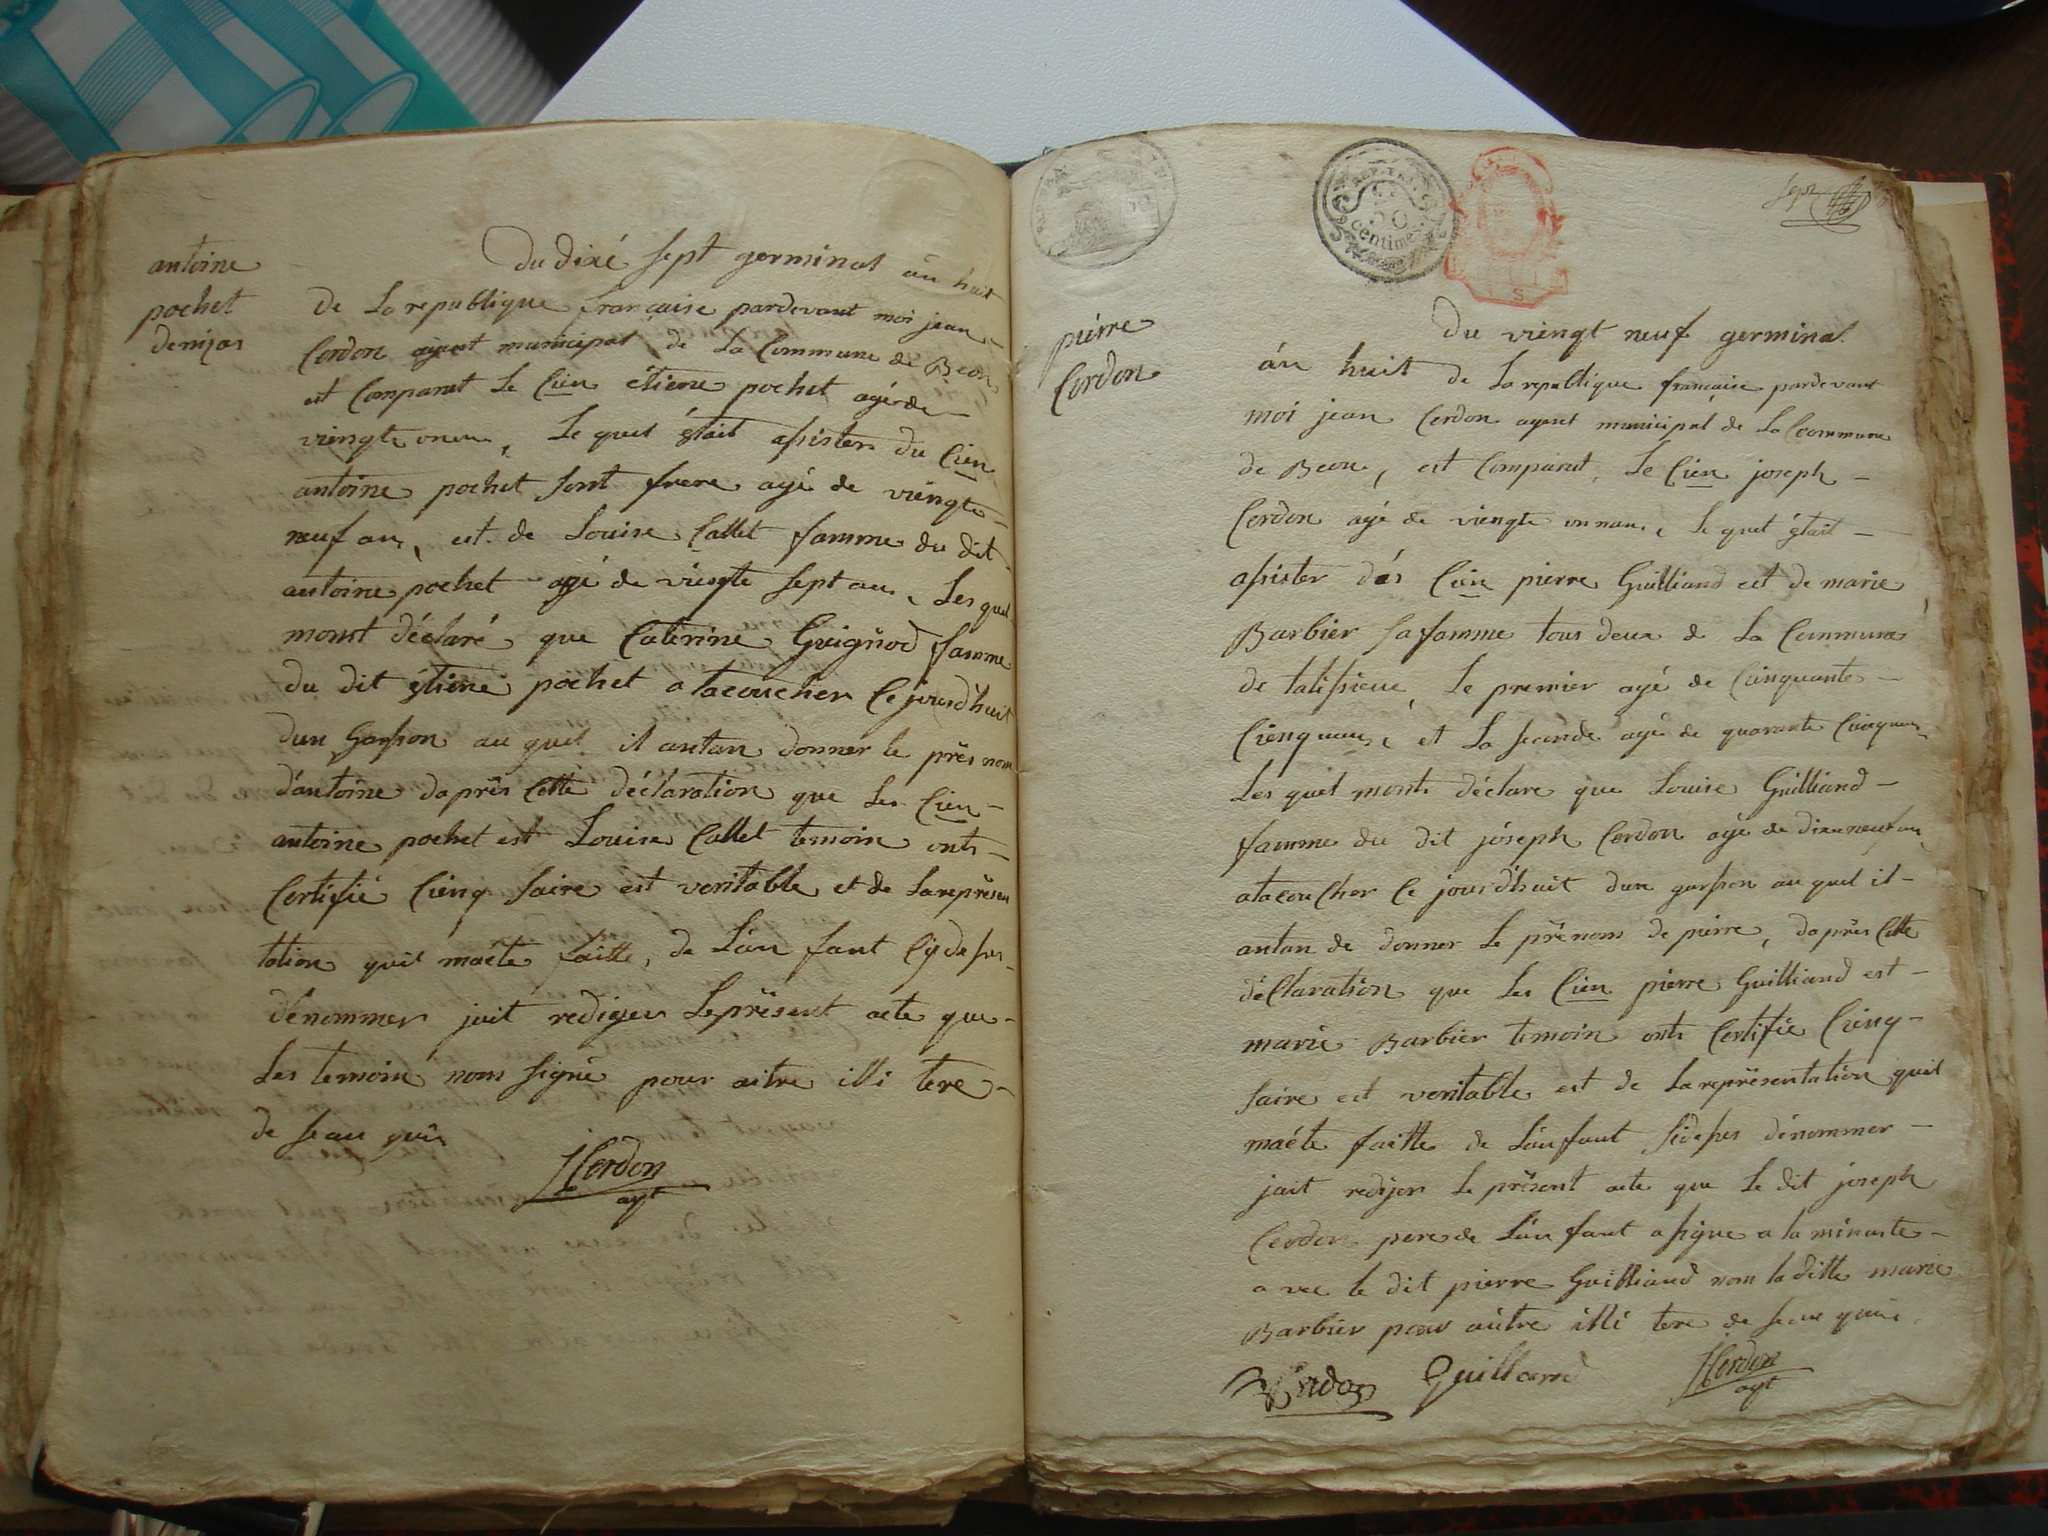 antoine
pochet
denijos
du dixé sept germinal án huit
de La republique française pardevant moi jean
Cerdon agent municipal de La Commune de Beon
est Comparut Le Cien étiene pochet agé de
viengte onean, Le quel était assister du Cien
antoine pochet sont frere agé de viengte
neuf an, est de Louise Callet famme du dit
antoine pochet agé de viengte sept an, Les quel
monst déclaré que Caterine Guignod famme
du dit étiene pochet atacoucher Ce jourd'huit
dun garsson au quel il antan donner le prénom
d'antoine daprês Cette déclaration que Les Cien
antoine pochet est Louise Callet temoin onts
Certifié Cienq saire est veritable et de Larepresen
tation quil maéte faitte, de L'an fant Cy desus
dénommer jait rediger Leprésent acte que
Les temoint nom signé pour aitre illi tere
de seau quis
JCerdon
agt
sept
REP. FRA.
50
centimes
pierre
Cerdon
du viengt neuf germinal
án huit de La republique française pardevant
moi jean Cerdon agent municipal de La Commune
de Beon, est Comparut, Le Cien joseph
Cerdon agé de viengte onnan, Le quel était
assister dés Cien pierre Guilliand est de marie
Barbier sa famme tous deux de La Commune
de talissieu, Le premier agé de Cienquante
Cienquan, et La seconde agé de quarante Cienquan,
Les quel monts déclare que Louise Guilliand
famme du dit joseph Cerdon agé de dixneuf an
atacoucher Ce jourd'huit dun garsson au quel il
antan de donner Le prénom de pierre, daprês Cette
déClaration que Les Cien pierre Guilliand est
marie Barbier temoin onts Certifie Cienq
saire est veritable est de La representation quil
maéte faitte de L'anfant sidesus dénommer
jait redijer Le présent acte que Le dit joseph
Cerdon pere de L'an fant a signe a la minuste
avec le dit pierre Guilliand nom la ditte marie
Barbier pour aitre illi tere de seau quis,
Cerdon Guilland JCerdon
agt